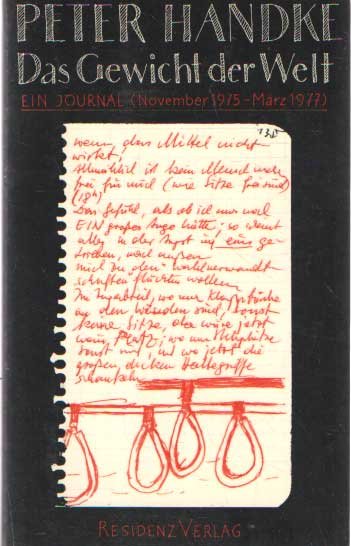 PETER HANDKE
Das Gewicht der Welt
EIN JOURNAL (November 1975 - März 1977)
wenn das Mittel nicht
wirkt!
allmählich ist kein Mensch mehr
frei für mich (wie Sitze frei sind)
(18h)
Das Gefühl, als ob ich nur noch
EIN großes Auge hätte; so
alles in der Angst ins eins ge-
trieben, nach außen
mich zu den "Wahlverwandt-
schaften" flüchten wollen
Im Zugabteil, wo nur Klappstühle
an den Wänden sind, sonst
keine Sitze, aber wäre jetzt
Platz; wo nur Stehplätze
sonst sind, und wo jetzt die
großen, dicken Haltegriffe
schaukeln
RESIDENZ VERLAG